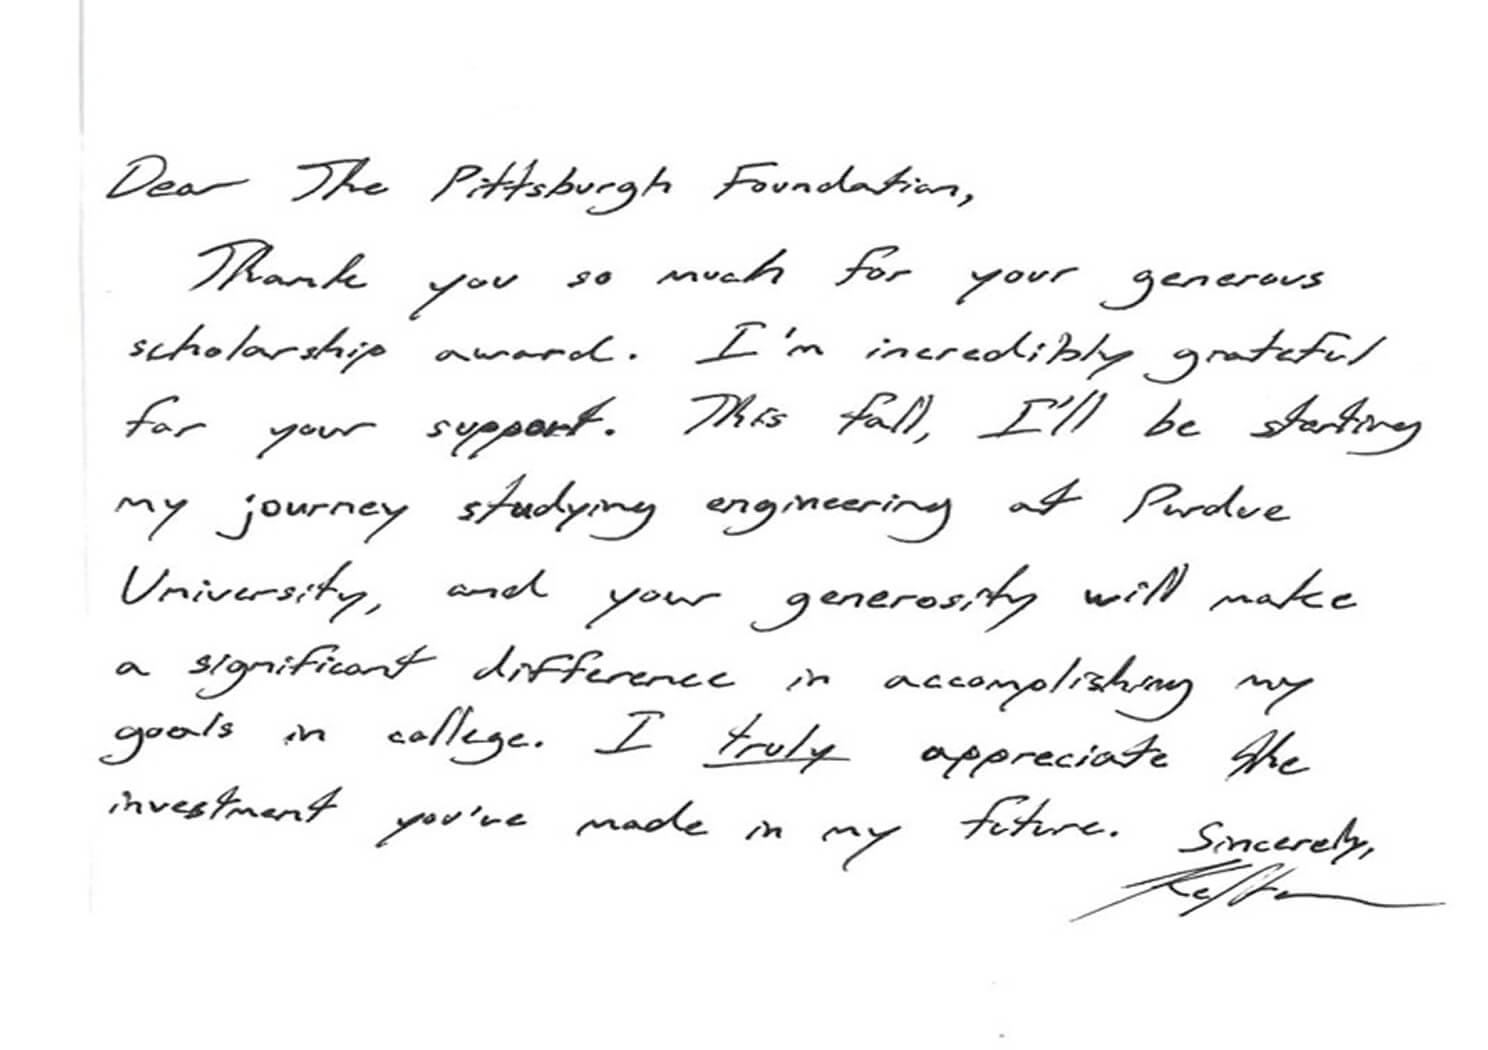 Dear The Pittsburgh Foundation,
Thank you so much for your generous
scholarship award. I'm incredibly grateful
for your support. This fall, I'll be starting
my journey studying engineering at Purdue
University, and your generosity will make
a significant difference in accomplishing my
goals in college. I truly appreciate the
investment you've made in my future. Sincerely,